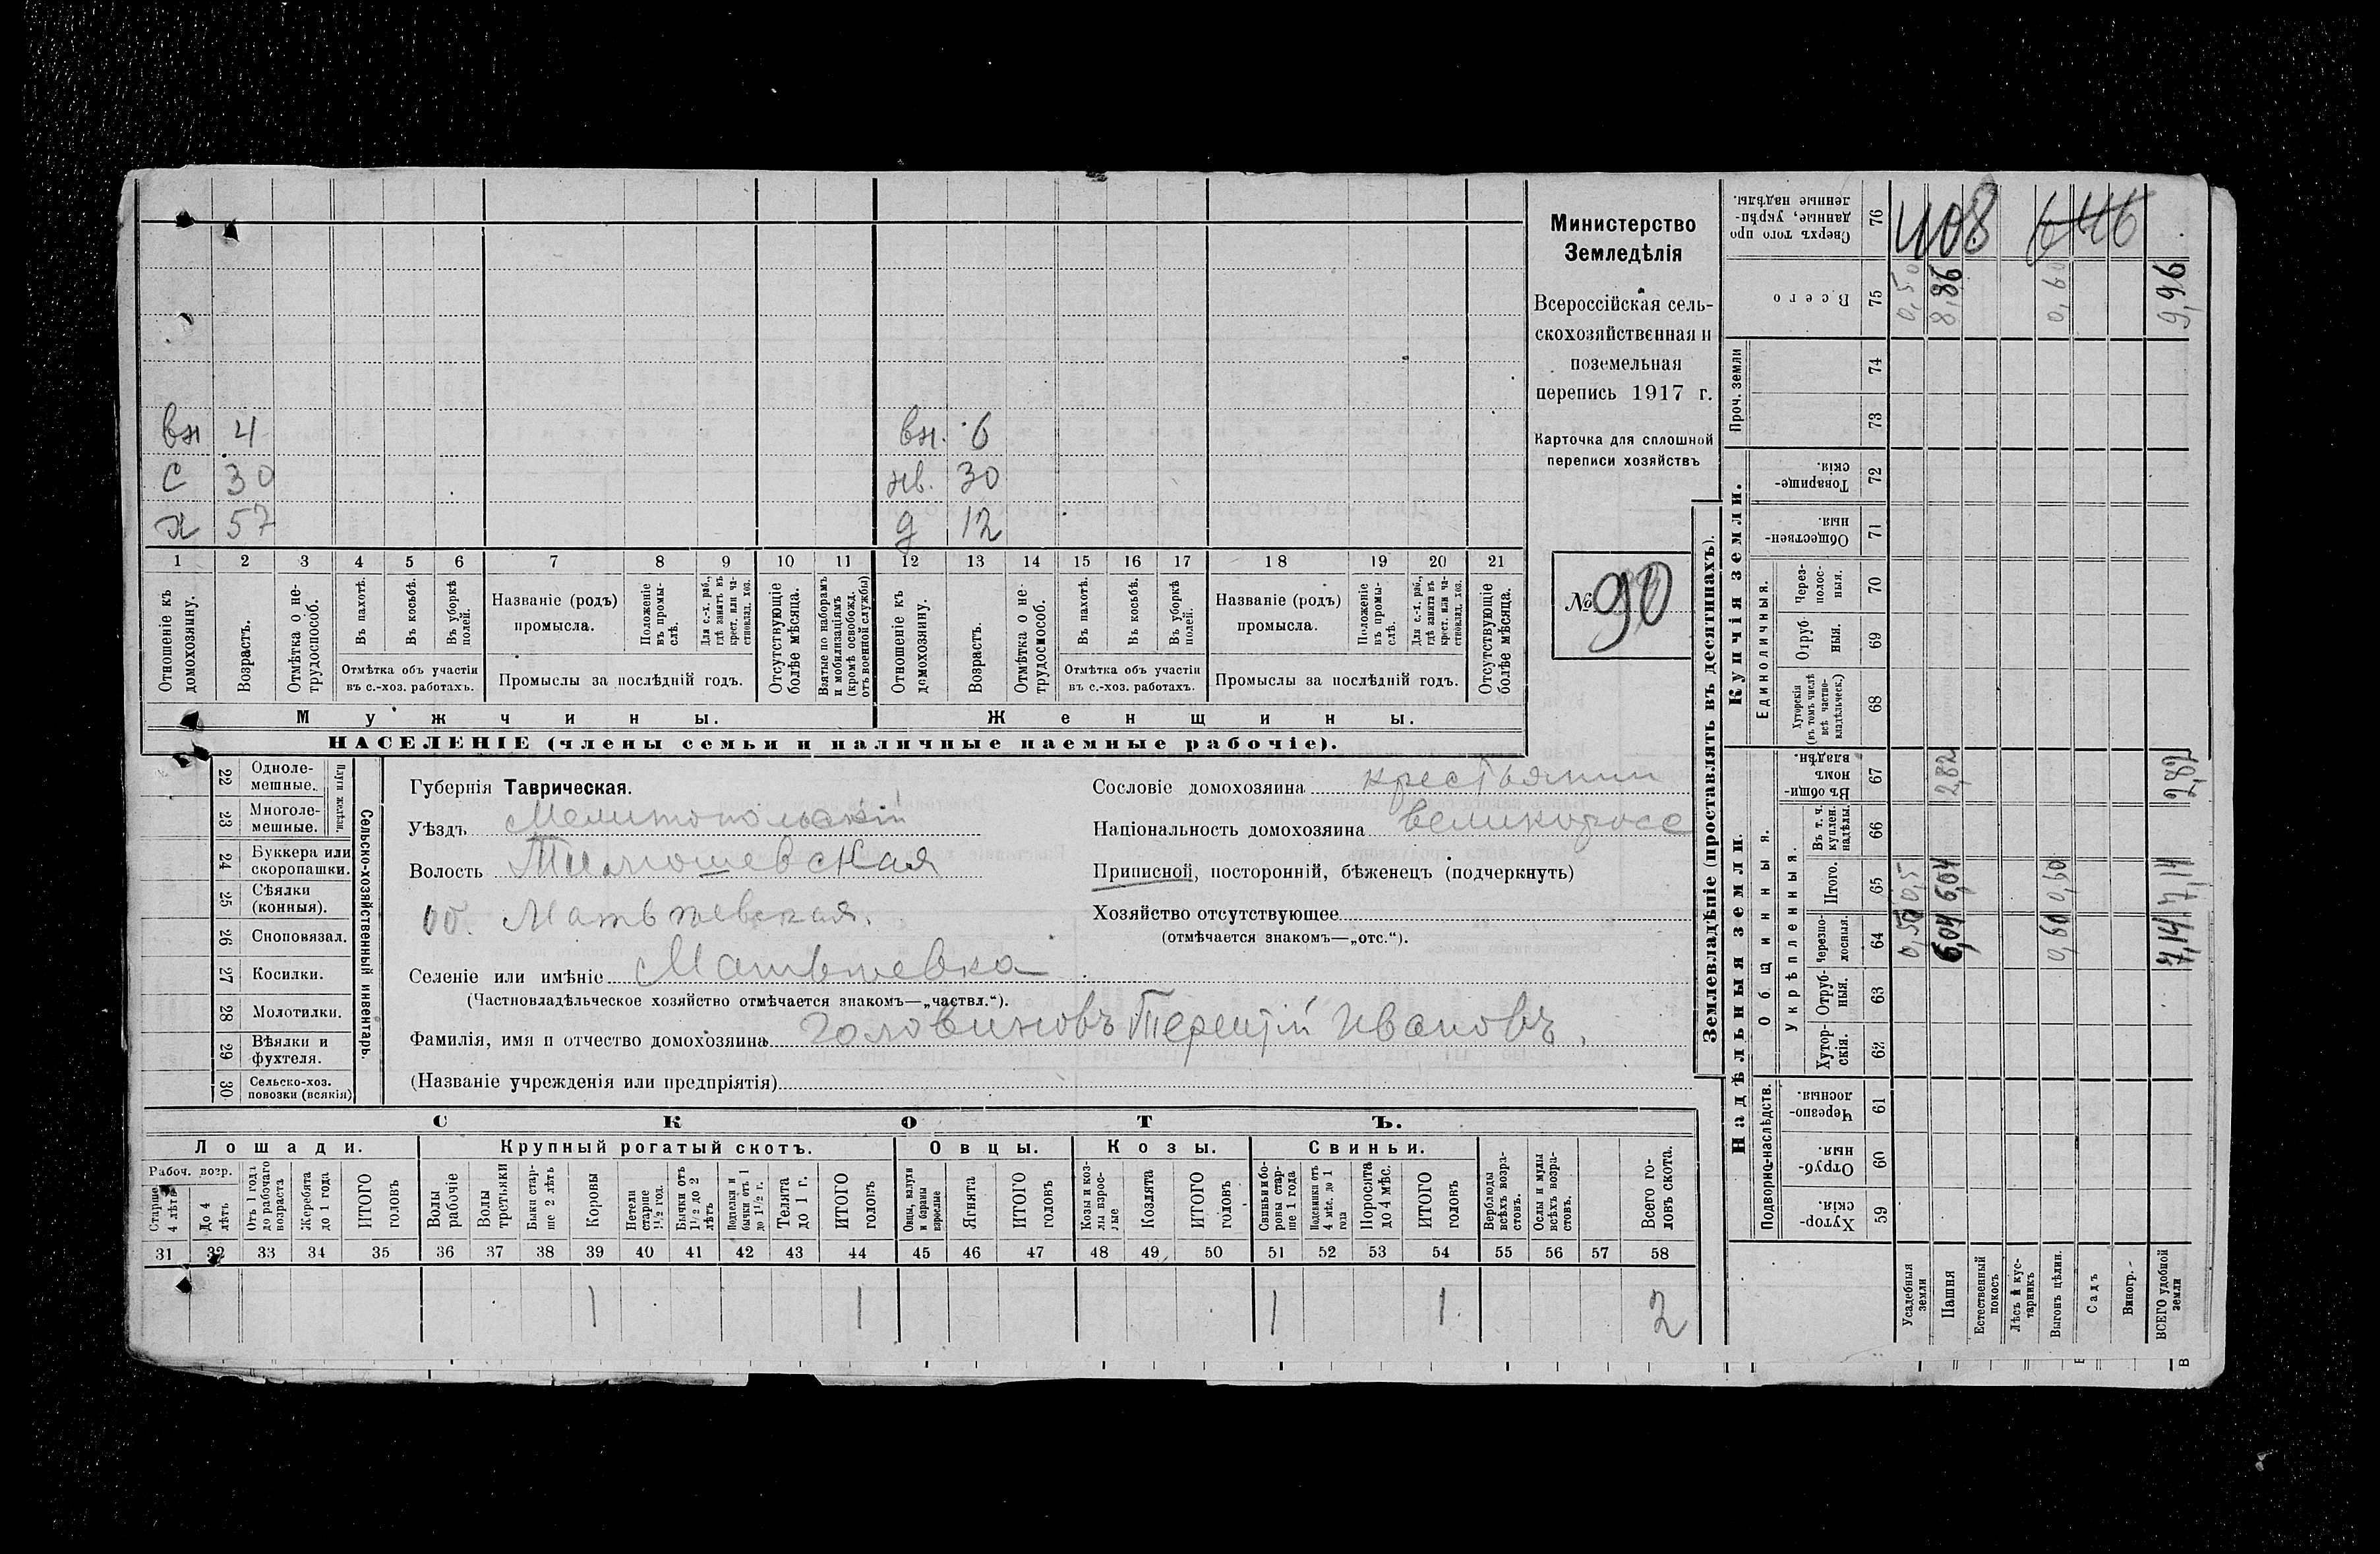 вн 4 вн. 6
с 30 нв. 30
х 57 д 12
1 2 3 4 5 6 7 8 9 10 11 12 13 14 15 16 17 18 19 20 21
Отношеніе къ домохозяину.
Возрастъ.
Отмѣтка о не-трудоспособ.
Въ пахотѣ.
Въ косьбѣ.
Въ уборкѣ полей.
Отмѣтка объ участіи
въ с.-хоз. работахъ.
Названіе (родъ)
промысла.
Положеніе въ промы-слѣ.
Для с.-х. раб., гдѣ занятъ въ крест. или ча-стновлад. хоз.
Промыслы за послѣдній годъ.
Отсутствующіе болѣе мѣсяца.
Взятые по наборамъ и мобилизаціямъ (кромѣ освобожд. отъ военной службы)
Отношеніе къ домохозяину.
Возрастъ.
Отмѣтка о не-трудоспособ.
Въ пахотѣ.
Въ косьбѣ.
Въ уборкѣ полей.
Отмѣтка объ участіи
въ с.-хоз. работахъ.
Названіе (родъ)
промысла.
Положеніе въ промы-слѣ.
Для с.-х. раб., гдѣ занята въ крест. или ча-стновлад. хоз.
Промыслы за послѣдній годъ.
Отсутствующіе болѣе мѣсяца.
Мужчины. Женщины.
НАСЕЛЕНІЕ (члены семьи и наличные наемные рабочіе).
Министерство
Земледѣлія
Всероссійская сель-
скохозяйственная и
поземельная
перепись 1917 г.
Карточка для сплошной
переписи хозяйствъ
№ 90
22 Одноле-мешные.
23 Многоле-мешные.
Плуги желѣзн.
24 Буккера или скоропашки.
25 Сѣялки (конныя).
26 Сноповязал.
27 Косилки.
28 Молотилки.
29 Вѣялки и фухтеля.
30 Сельско-хоз. повозки (всякія)
Сельско-хозяйственный инвентарь.
Губернія Таврическая.
Уѣздъ Мелитопольскій
Волость Тимошевская
об. Матвѣевская.
Селеніе или имѣніе Матвѣевка
(Частновладѣльческое хозяйство отмѣчается знакомъ—„частвл.“).
Фамилія, имя и отчество домохозяина Головиновъ Терентій Ивановъ,
(Названіе учрежденія или предпріятія)
Сословіе домохозяина крестьянин
Національность домохозяина великоросс
Приписной, посторонній, бѣженецъ (подчеркнуть)
Хозяйство отсутствующее
(отмѣчается знакомъ—„отс.“).
СКОТЪ.
Лошади. Крупный рогатый скотъ. Овцы. Козы. Свиньи.
Рабоч. возр.
Старше 4 лѣтъ
До 4 лѣтъ
Отъ 1 года до рабочаго возраста
Жеребята до 1 года
ИТОГО головъ
Волы рабочіе
Волы третьяки
Быки стар-ше 2 лѣтъ
Коровы
Нетели старше 1½ год.
Бычки отъ 1½ до 2 лѣтъ
Подтелки и бычки отъ 1 до 1½ г.
Телята до 1 г.
ИТОГО головъ
Овцы, валухи и бараны взрослые
Ягнята
ИТОГО головъ
Козы и коз-лы взрос-лые
Козлята
ИТОГО головъ
Свиньи и бо-ровы стар-ше 1 года
Подсвинки отъ 4 мѣс. до 1 года
Поросята до 4 мѣс.
ИТОГО головъ
Верблюды всѣхъ возра-стовъ.
Ослы и мулы всѣхъ возра-стовъ.
Всего го-ловъ скота.
31 32 33 34 35 36 37 38 39 40 41 42 43 44 45 46 47 48 49 50 51 52 53 54 55 56 57 58
1 1 1 1 2
Землевладѣніе (проставлять въ десятинахъ).
Надѣльныя земли. Купчія земли. Проч. земли
Подворно-наслѣдств.
Общинныя.
Укрѣпленныя.
Единоличныя.
Хутор-скія. 59
Отруб-ныя. 60
Черезпо-лосныя. 61
Хутор-скія. 62
Отруб-ныя. 63
Черезпо-лосныя. 64
Итого. 65
Въ т. ч. куплен. надѣлы. 66
Въ общи-номъ владѣн. 67
Хуторскія (въ томъ числѣ всѣ частно-владѣльческ.) 68
Отруб-ныя. 69
Через-полос-ныя. 70
Обществен-ныя. 71
Товарище-скія. 72
73
74
Всего 75
Сверхъ того про-данные, укрѣп-ленные надѣлы. 76
Усадебныя земли 0,50 0,5 0,50
Пашня 6,04 6,04 2,82 8,86
Естественный покосъ
Лѣсъ и кус-тарникъ
Выгонъ цѣлин. 0,60 0,60 0,60
Садъ
Виногр.
ВСЕГО удобной земли 7,14 7,14 2,82 9,96
408